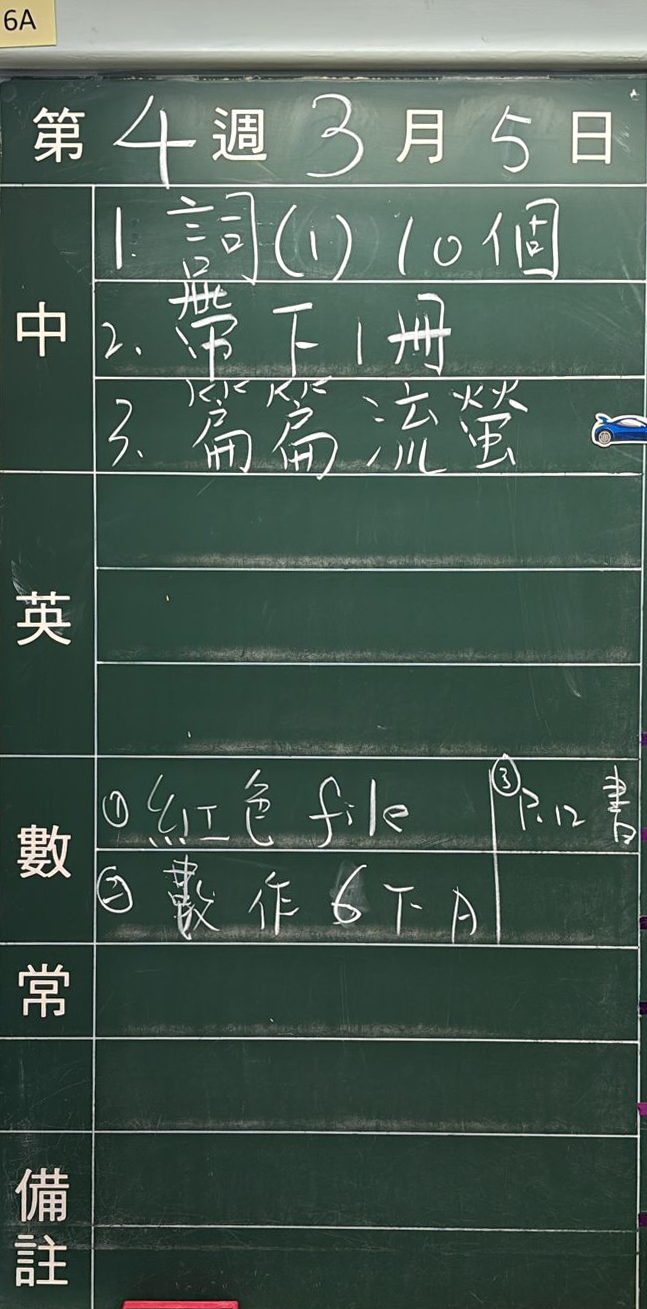 6A
第 4 週 3 月 5 日
中
1. 詞(1) 10個
2. 帶下1冊
3. 篇篇流螢
英
數
① 紅色 file
② 數作6下A
③ P.12 書
常
備註